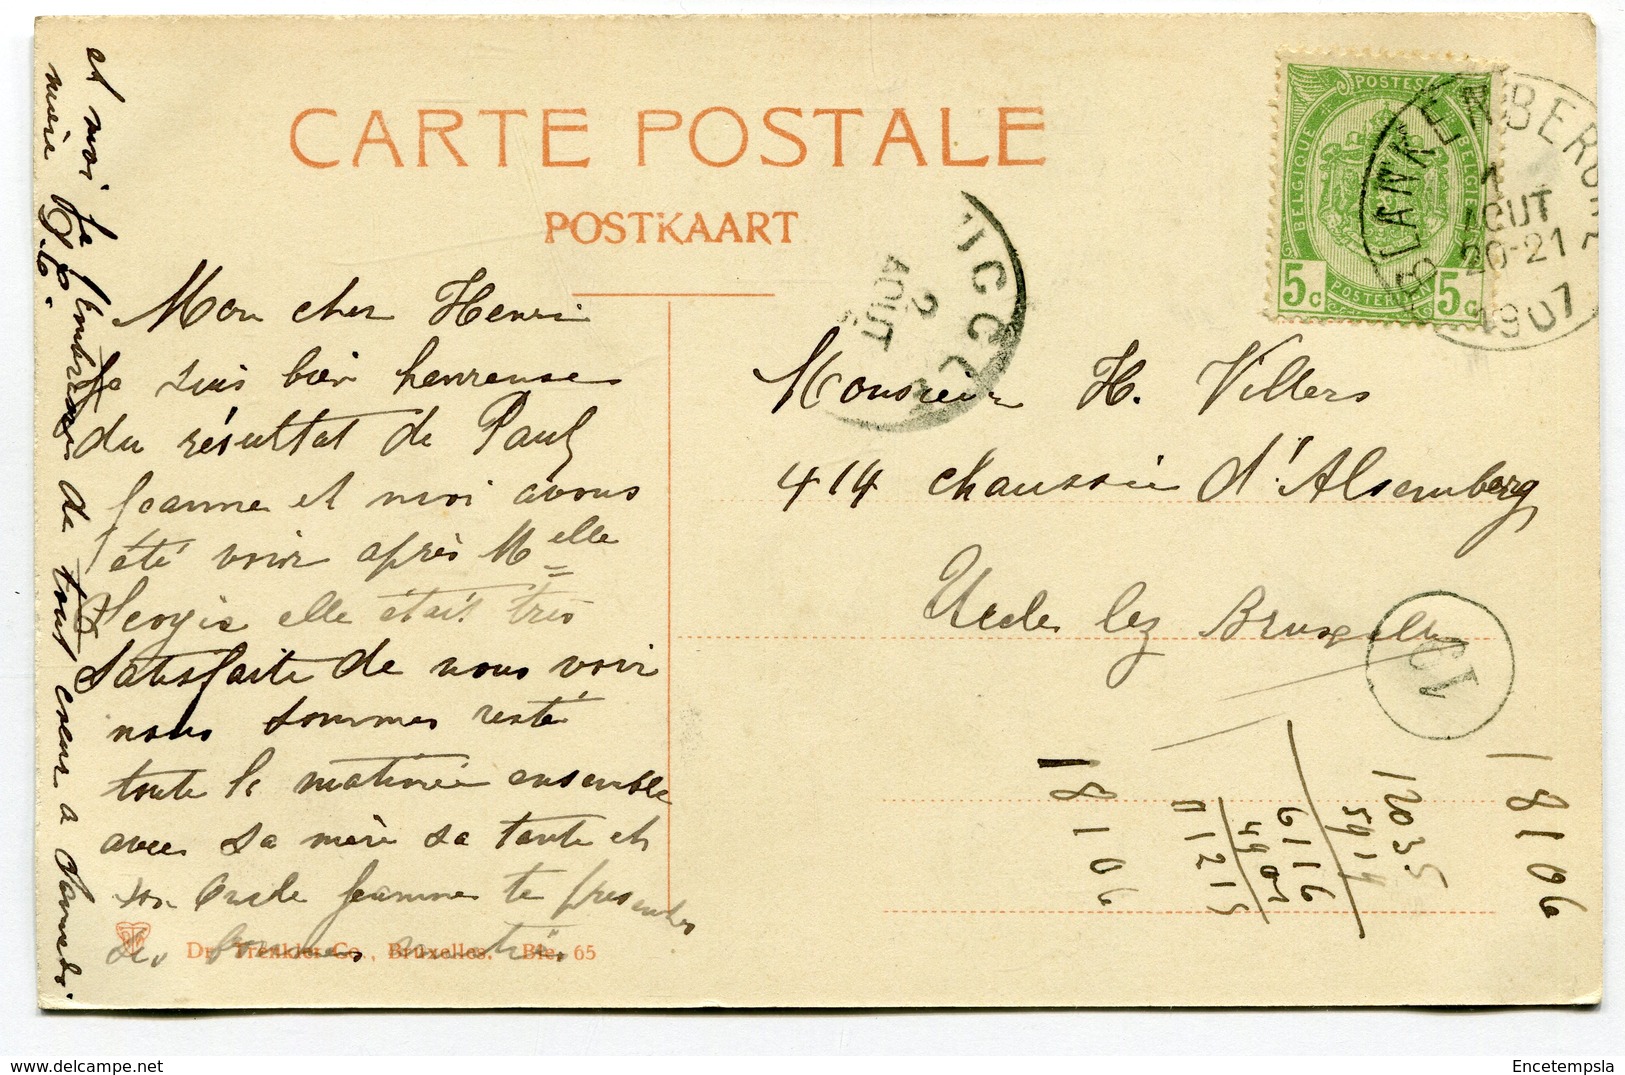 CARTE POSTALE
POSTKAART
Mon cher Henri
Je suis bien heureuse
du résultat de Paul
Jeanne et moi avons
été voir après Melle
elle était très
Satisfaite de nous voir
nous sommes resté
toute la matinée ensemble
avec sa mère sa tante et
son Oncle Jeanne te présente
des
et moi je t'embrasse de tout coeur a Samedi.
mère
Dr. Trenkler Co., Bruxelles. Ble. 65
POSTES
BELGIQUE
BELGIE
POSTERIJEN
5c
5c
BLANKENBERGHE
1
AOUT
20-21
1907
2
AOUT
Monsieur H. Villers
414 chaussée d'Alsemberg
Uccle lez Bruxelles
18106
12035
5914
6116
4909
11215
18106
Encetempsla